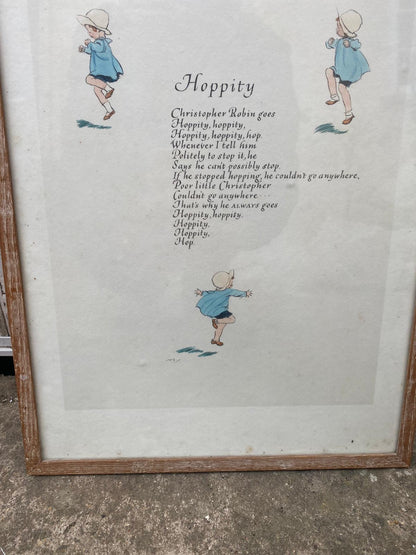 Hoppity
Christopher Robin goes
Hoppity, hoppity,
Hoppity, hoppity, hop.
Whenever I tell him
Politely to stop it, he
Says he can't possibly stop.
If he stopped hopping, he couldn't go anywhere,
Poor little Christopher
Couldn't go anywhere . . .
That's why he ALWAYS goes
Hoppity, hoppity,
Hoppity,
Hoppity,
Hop.